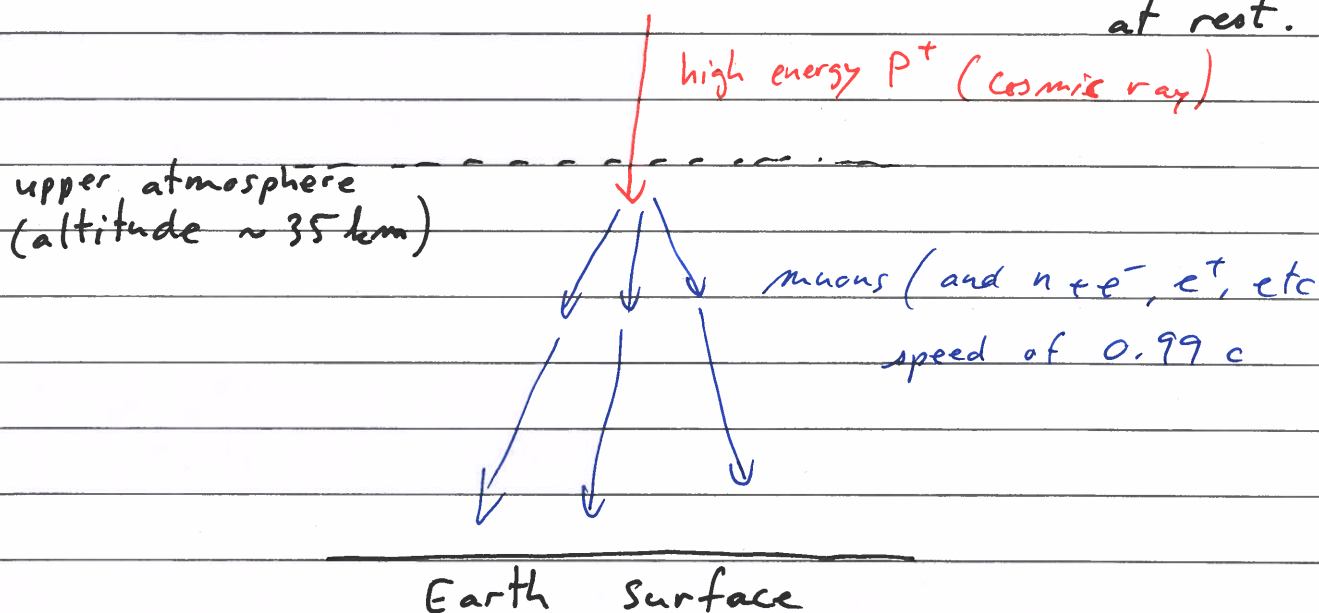 at rest.
high energy P⁺ (cosmic ray)
upper atmosphere
(altitude ~ 35 km)
muons (and n + e⁻, e⁺, etc
speed of 0.99 c
Earth surface